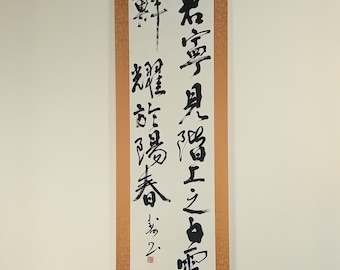 君寧見階上之白雪
鮮耀於陽春